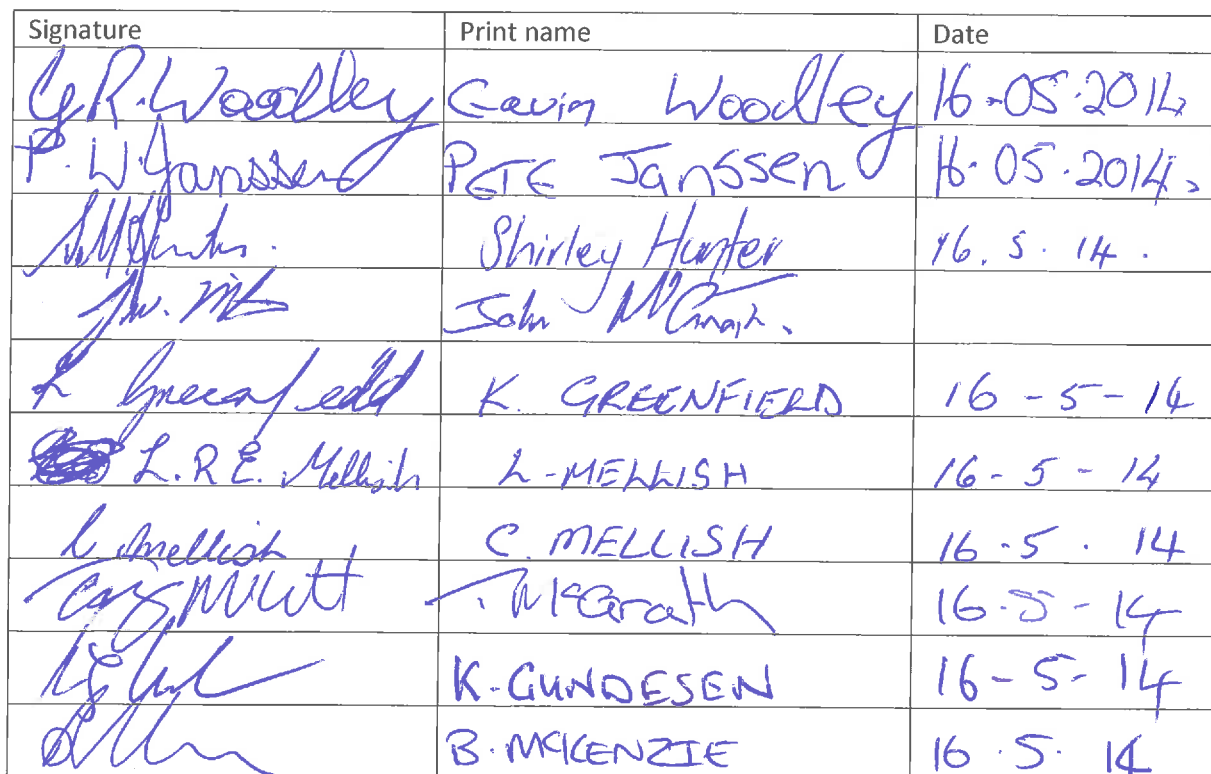 Signature Print name Date
G R. Woodley Gavin Woodley 16-05-2014
P. W. Janssen PETE Janssen 16-05.2014.
Shirley Hunter 16. 5. 14.
John
K Greenfield K. GREENFIELD 16-5-14
L. R E. Mellish L-MELLISH 16-5-14
C. Mellish C. MELLISH 16.5.14
T. McGrath 16-5-14
K. GUNDESEN 16-5-14
B. MCKENZIE 16.5.14